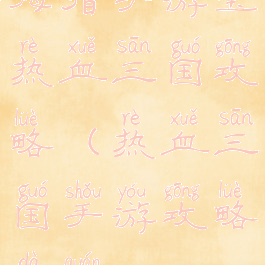 rè xuè sān guó gōng
热血三国攻
lüè rè xuè sān
略(热血三
guó shǒu yóu gōng lüè
国手游攻略